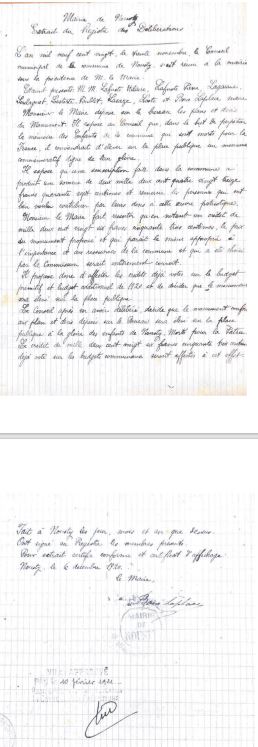 Mairie de Nousty
Extrait du Registre des Délibérations
L'an mil neuf cent vingt, le trente novembre, le Conseil
municipal de la commune de Nousty, s'est réuni à la mairie
sous la présidence de M. le Maire.
Etaient présents M.M. Lafuste Hilaire, Lafuste Pierre,
et Bois Laplace, maire
Monsieur le Maire dépose sur le bureau les plans et devis
du Monument. Il expose au Conseil que, dans le but de perpétuer
la mémoire des Enfants de la commune qui sont morts pour la
France, il conviendrait d'élever sur la place publique un monument
commémoratif digne de leur gloire.
Il expose qu'une souscription faite dans la commune a
produit une somme de deux mille deux cent quatre vingt treize
francs quarante sept centimes et remercie les personnes qui ont
bien voulu contribuer par leurs dons à cette œuvre patriotique.
Monsieur le Maire fait ressortir qu'en votant un crédit de
mille deux cent vingt six francs cinquante trois centimes, le prix
du monument proposé et qui paraît le mieux approprié à
l'importance et aux ressources de la commune et qui a été choisi
par la Commission, serait entièrement couvert.
Il propose donc d'affecter les crédits déjà votés sur le budget
primitif et budget additionnel de 1920 et de décider que le monument
sera élevé sur la place publique.
Le Conseil après en avoir délibéré décide que le monument conforme
au plan et devis déposés sur le bureau sera élevé sur la place
publique à la gloire des enfants de Nousty, Morts pour la Patrie.
Le crédit de mille deux cent vingt six francs cinquante trois centimes
déjà voté sur les budgets communaux seront affectés à cet effet.
Fait à Nousty les jour, mois et an que dessus.
Ont signé au Registre les membres présents.
Pour extrait certifié conforme et certificat d'affichage
Nousty, le 6 décembre 1920.
le Maire,
Bois Laplace
MAIRIE
DE
NOUSTY
VU & APPROUVÉ
10 février 1921